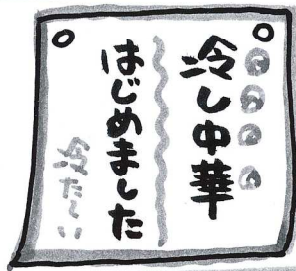 冷し中華
はじめました
冷た〜い